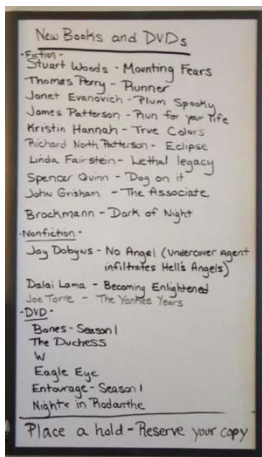 New Books and DVDs
·Fiction-
Stuart Woods - Mounting Fears
Thomas Perry - Runner
Janet Evanovich - Plum Spooky
James Patterson - Run for your life
Kristin Hannah - True Colors
Richard North Patterson - Eclipse
Linda Fairstein - Lethal legacy
Spencer Quinn - Dog on it
John Grisham - The Associate
Brockmann - Dark of Night
·Nonfiction-
Jay Dobyns - No Angel (undercover agent
infiltrates Hell's Angels)
Dalai Lama - Becoming Enlightened
Joe Torre - The Yankee Years
·DVD-
Bones - Season 1
The Duchess
W
Eagle Eye
Entourage - Season 1
Nights in Rodanthe
Place a hold - Reserve your copy